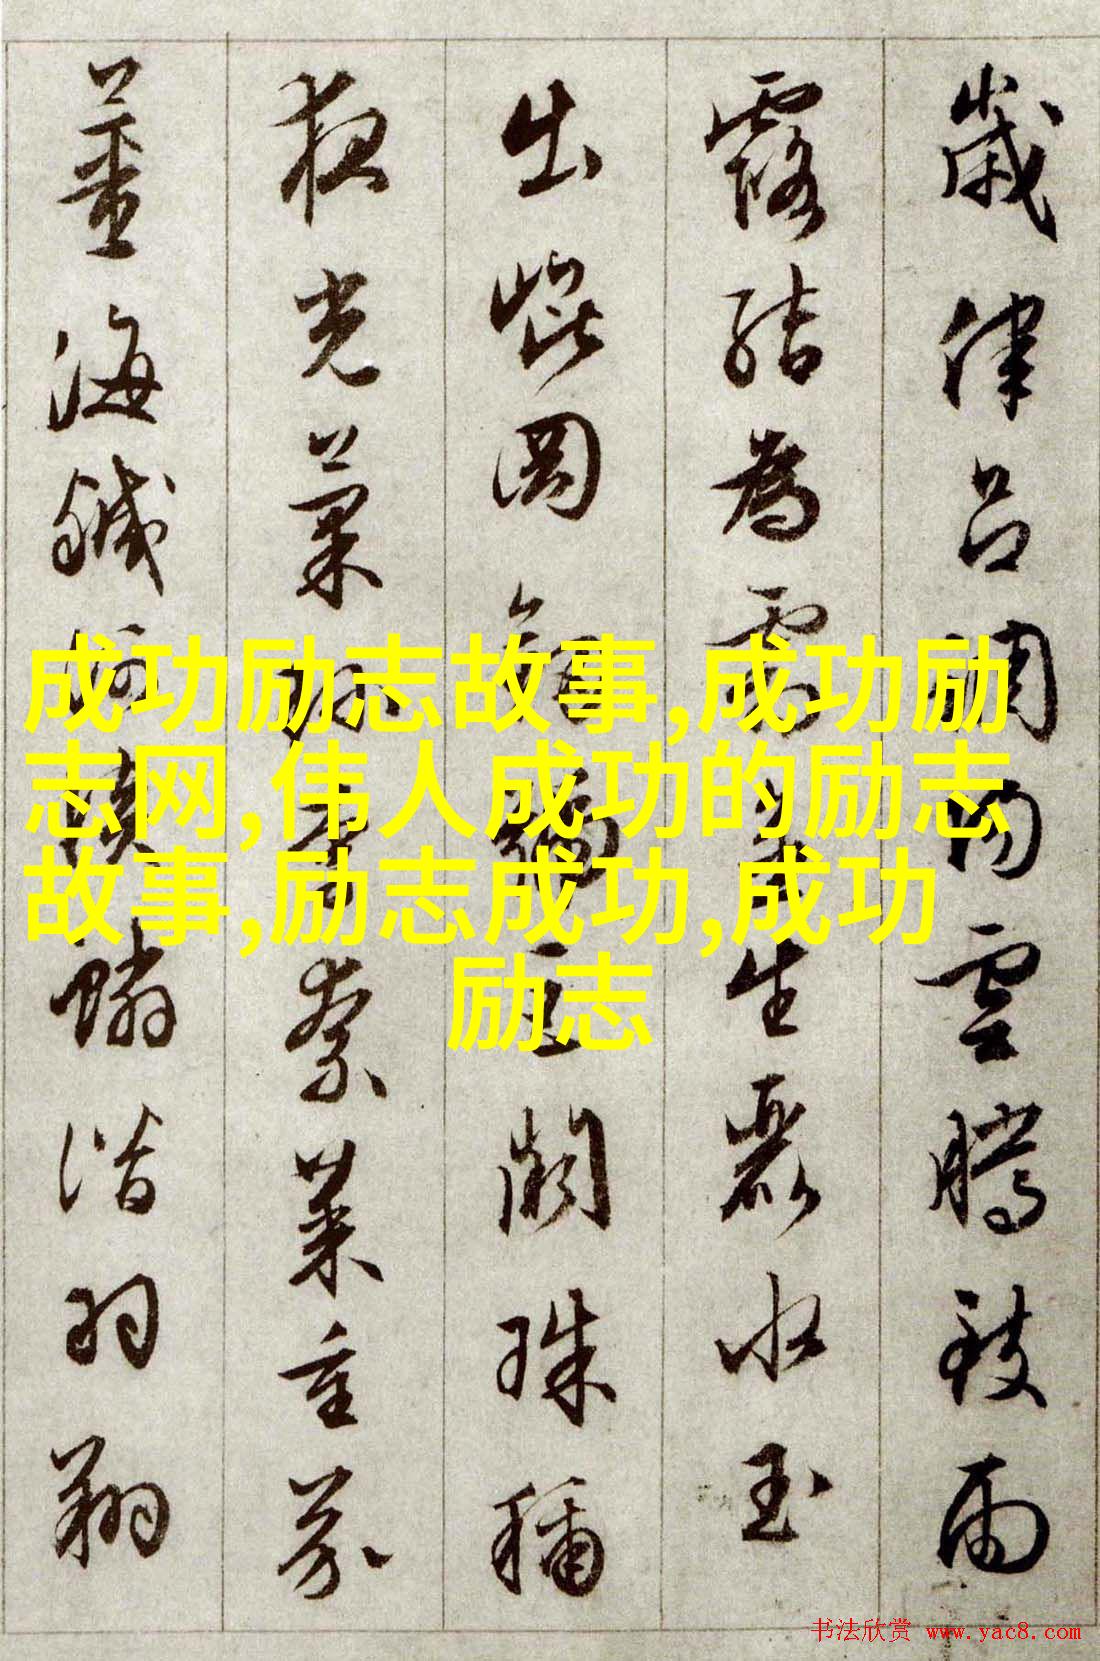 歲律呂調陽雲騰致雨
露結為霜金生麗水玉
出崐岡劍號巨闕珠稱
夜光菓珍李柰菜重芥
薑海鹹河淡鱗潛羽翔
成功励志故事,成功励
志网,伟人成功的励志
故事,励志成功,成功
励志
书法欣赏 www.yac8.com